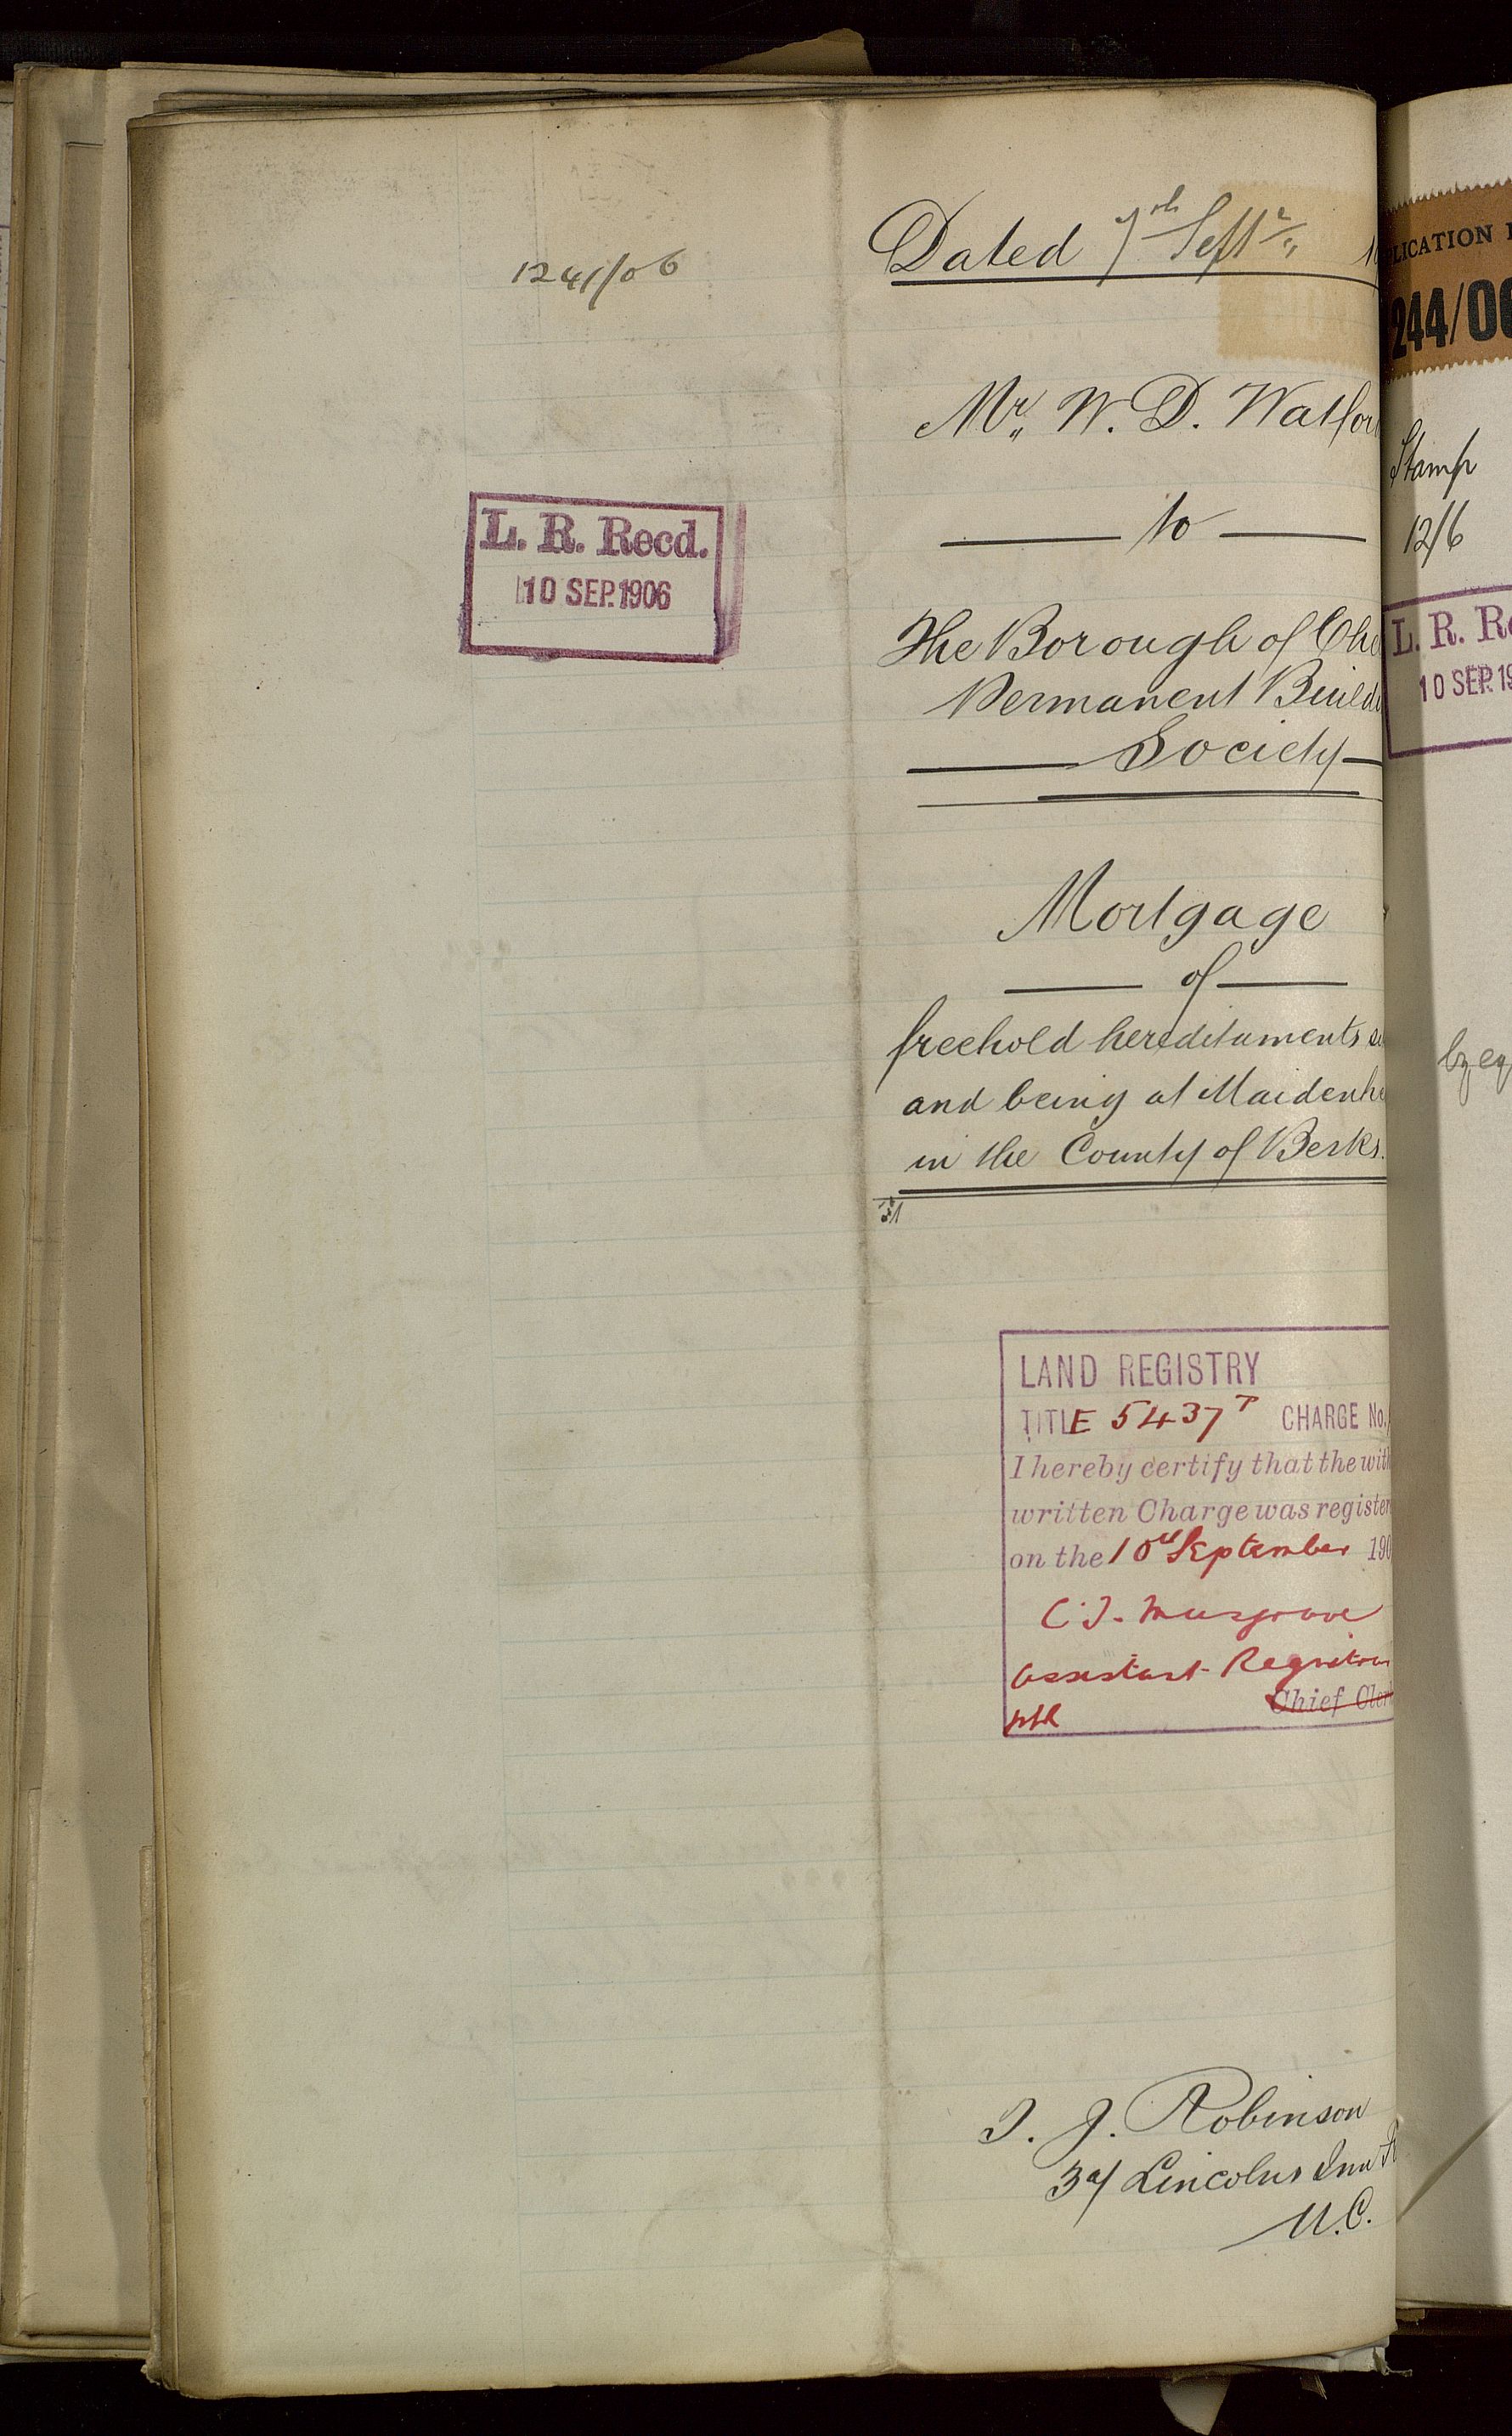 1241/06
L. R. Recd.
10 SEP. 1906
Dated 7th Septr
Mr. W. D. Watson
to
The Borough of Che
Permanent Build
Society
Mortgage
of
freehold hereditaments
and being at Maidenhe
in the County of Berks.
LAND REGISTRY
TITLE 5437 CHARGE No.
I hereby certify that the with
written Charge was register
on the 10th September 190
C. J. Musgrove
Assistant Registrar
Chief Cler
T. J. Robinson
3a/ Lincolns Inn
W.C.
PLICATION
244/06
Stamp
12/6
L. R. Re
10 SEP. 19